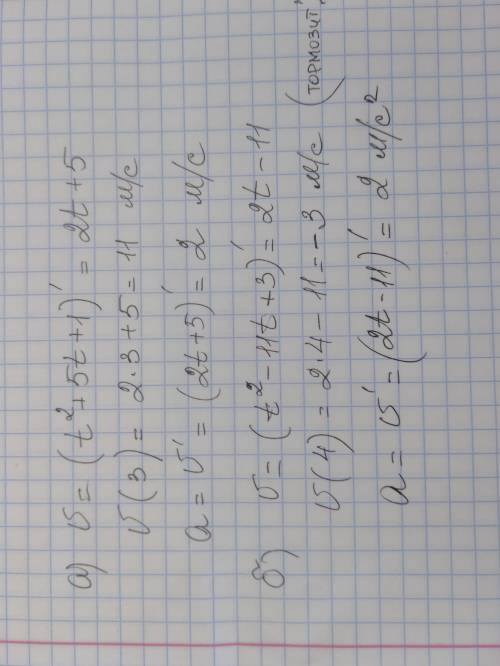 а) v = (t² + 5t + 1)' = 2t + 5
v(3) = 2·3 + 5 = 11 м/с
a = v' = (2t + 5)' = 2 м/с
б) v = (t² - 11t + 3)' = 2t - 11
v(4) = 2·4 - 11 = -3 м/с (тормозит
a = v' = (2t - 11)' = 2 м/с²